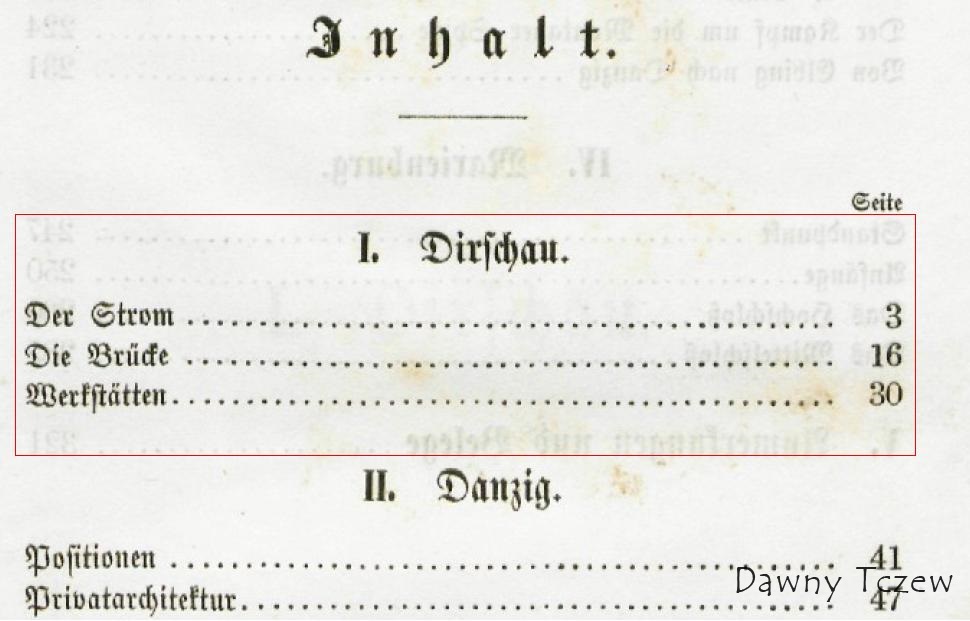 Inhalt.
Seite
I. Dirschau.
Der Strom . . . . . . . . . . . . . . . . . . . . . . . . . . . . . . 3
Die Brücke . . . . . . . . . . . . . . . . . . . . . . . . . . . . . . 16
Werkstätten . . . . . . . . . . . . . . . . . . . . . . . . . . . . . . 30
II. Danzig.
Positionen . . . . . . . . . . . . . . . . . . . . . . . . . . . . . . 41
Privatarchitektur . . . . . . . . . . . . . . . . . . . . . . . . . . 47
Dawny Tczew